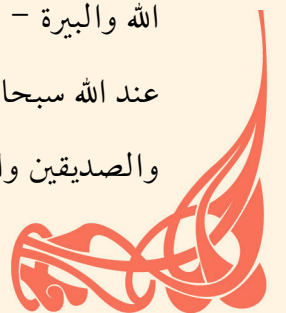 الله والبيرة –
عند الله سبحا
والصديقين وا